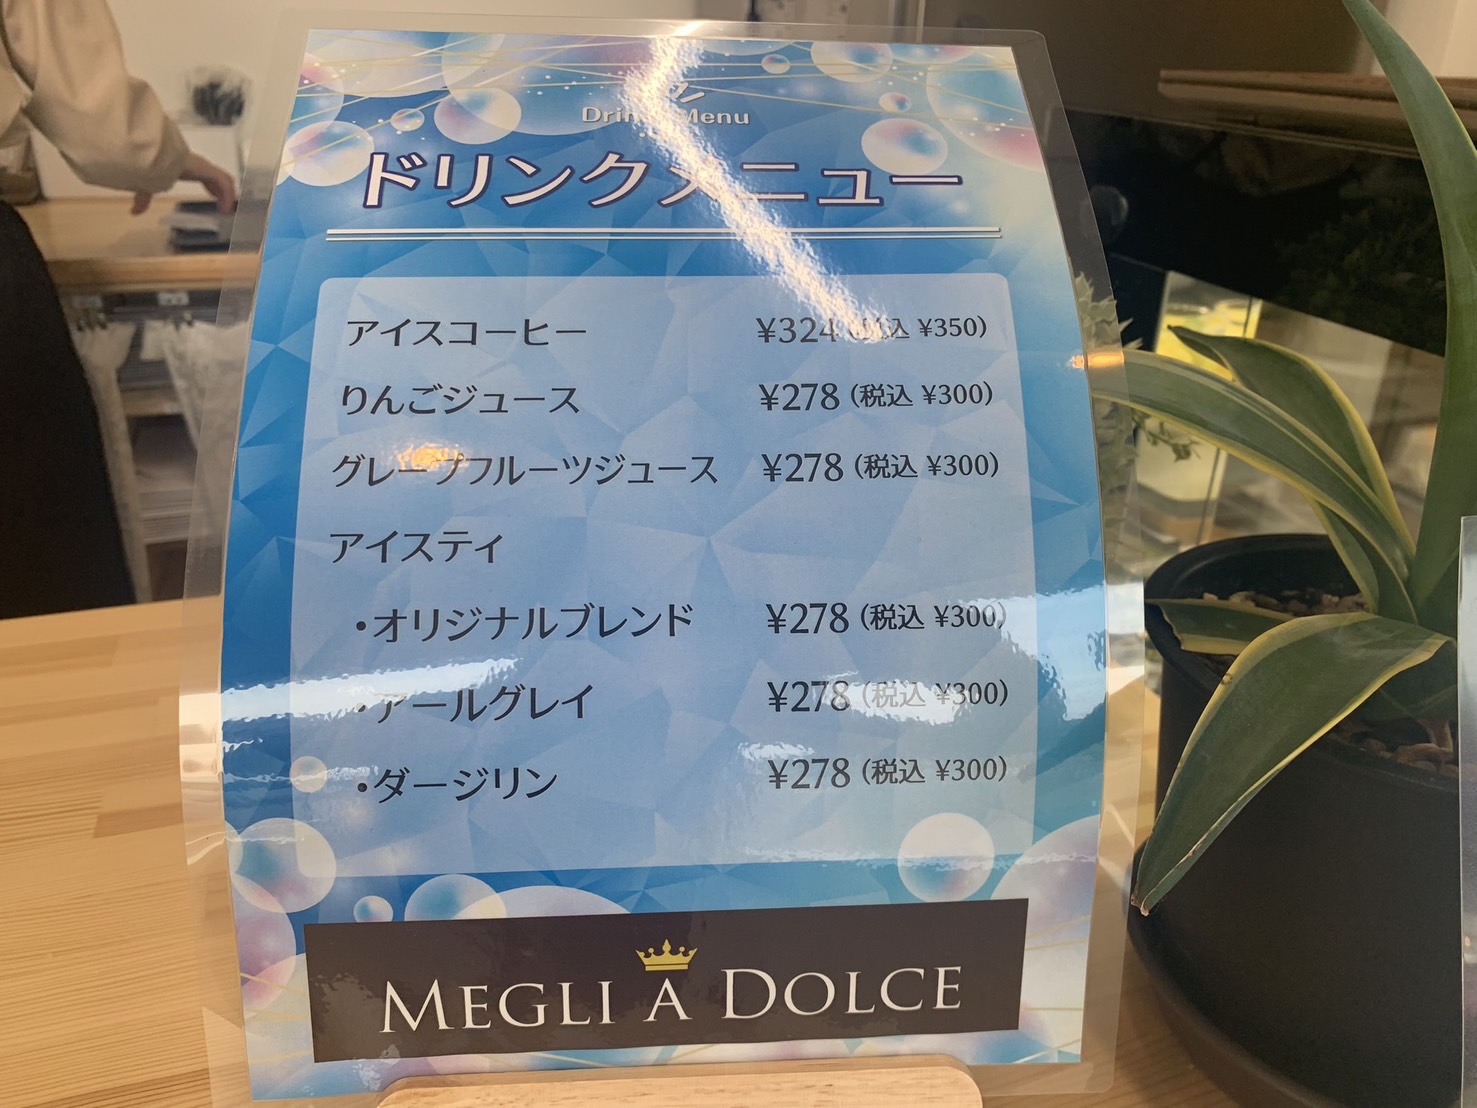 Drink Menu
ドリンクメニュー
アイスコーヒー ¥324 (税込 ¥350)
りんごジュース ¥278 (税込 ¥300)
グレープフルーツジュース ¥278 (税込 ¥300)
アイスティ
・オリジナルブレンド ¥278 (税込 ¥300)
・アールグレイ ¥278 (税込 ¥300)
・ダージリン ¥278 (税込 ¥300)
MEGLI A DOLCE